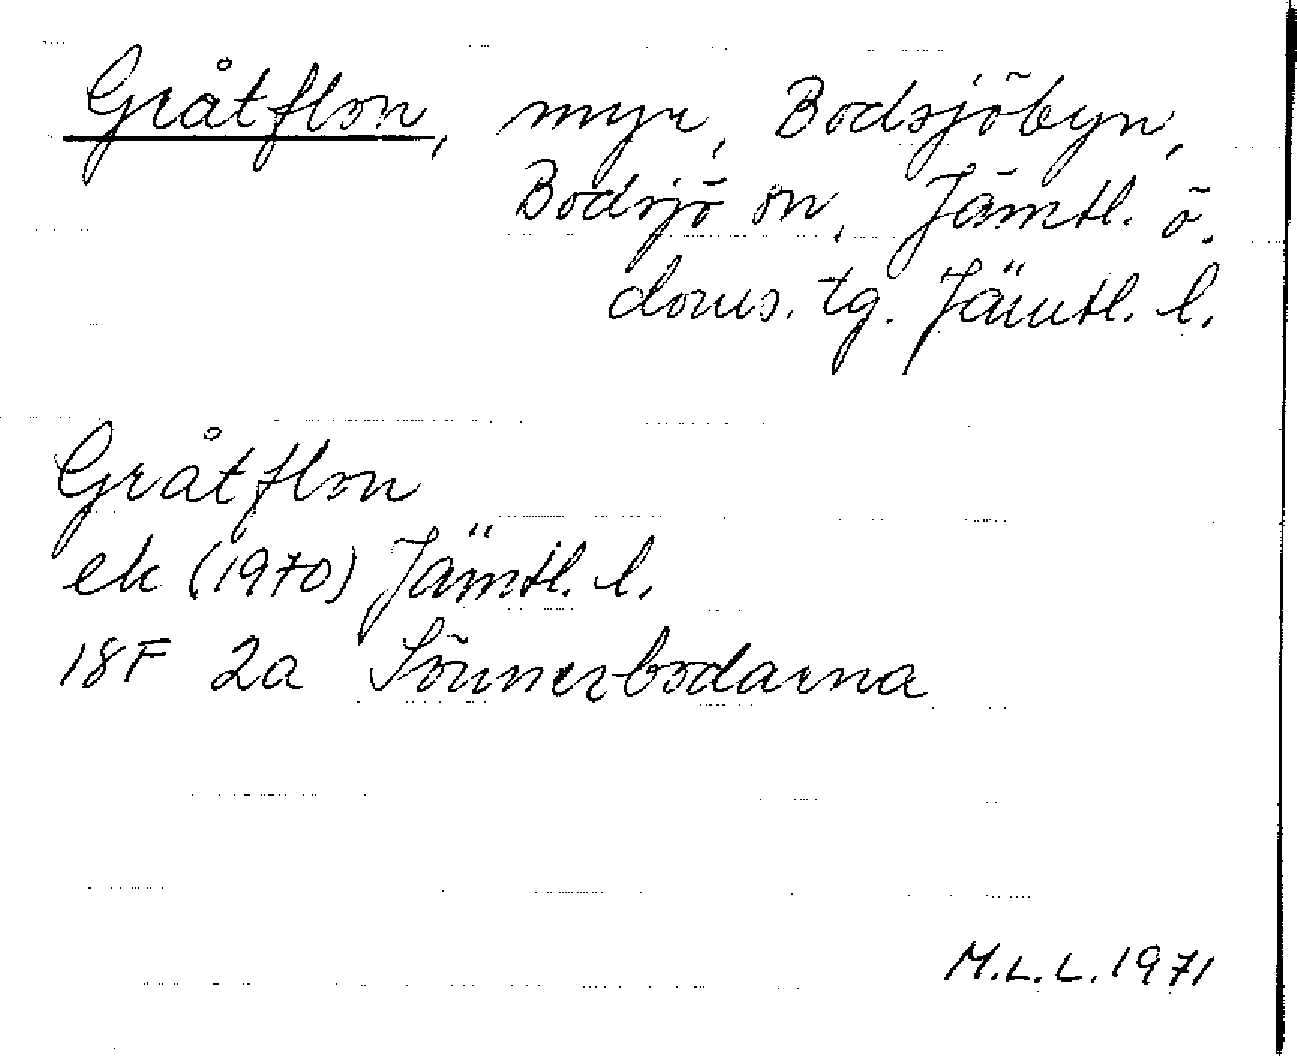 Gråtflon, myr, Bodsjöbyn,
Bodsjö sn, Jämtl. ö.
doms. tg. Jämtl. l.
Gråtflon
ek (1970) Jämtl. l.
18F 2a Sönnerbodarna
M.L.L. 1971